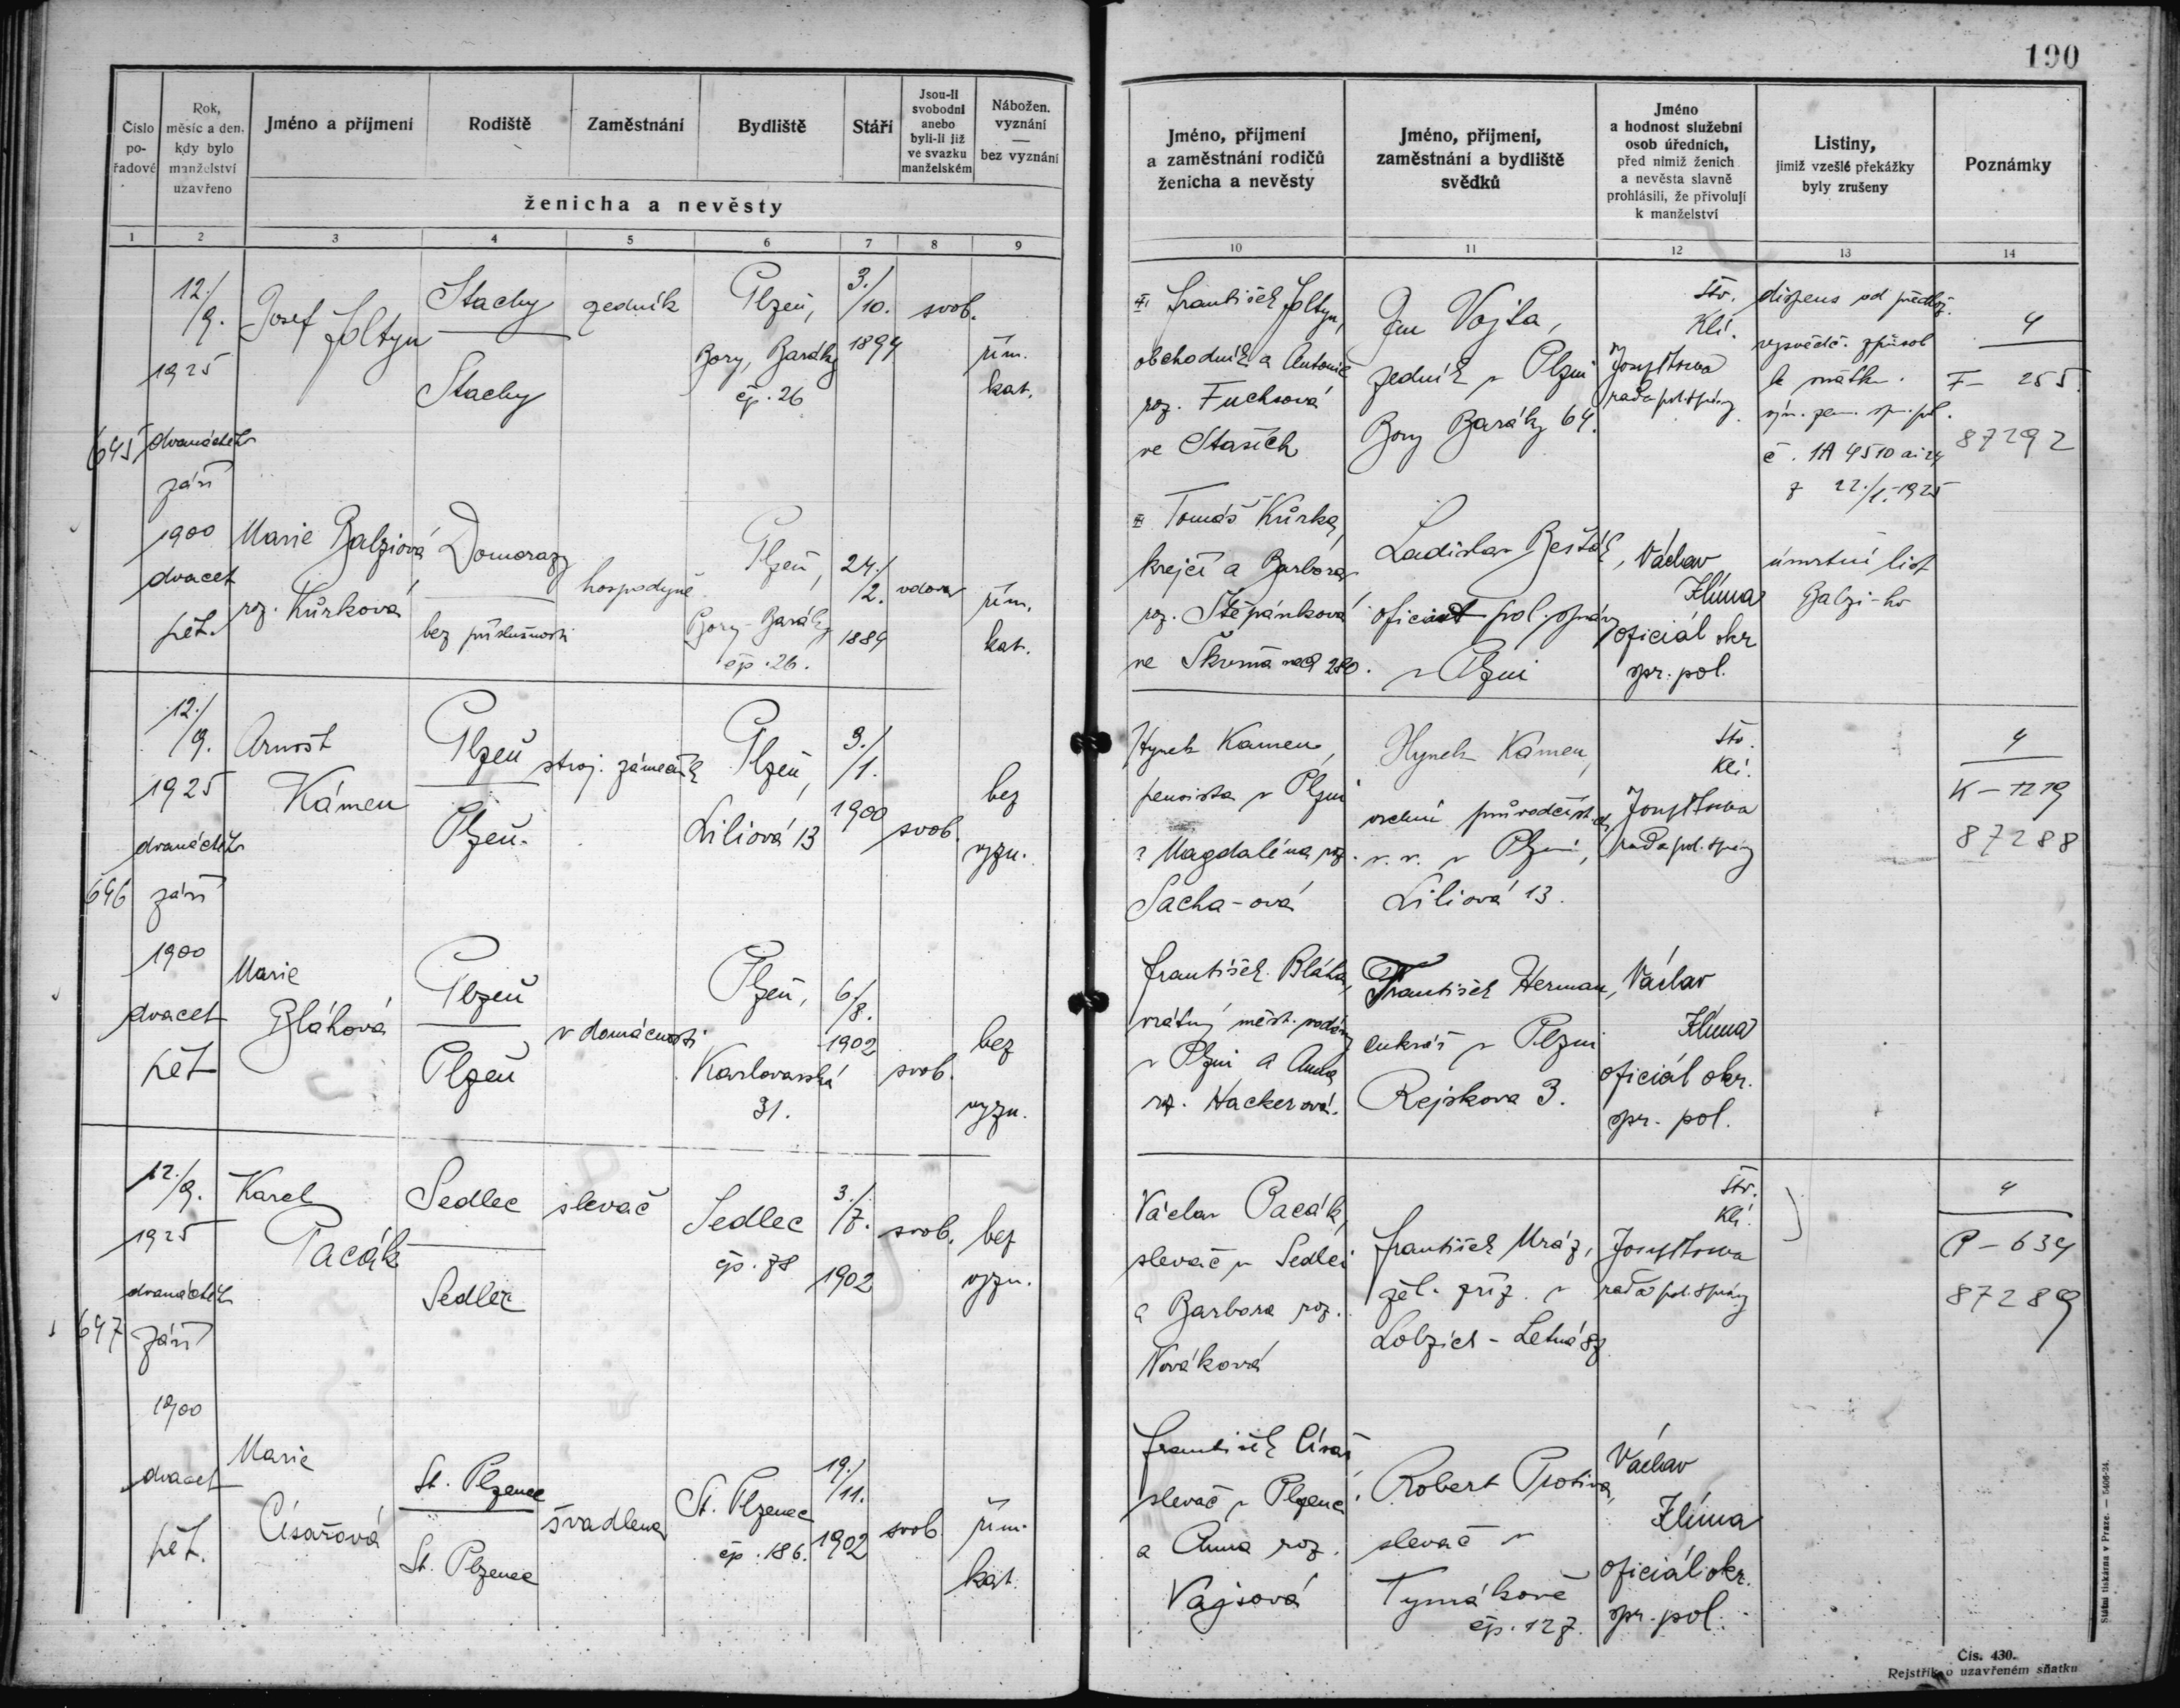 190
Číslo po-řadové
Rok, měsíc a den, kdy bylo manželství uzavřeno
Jméno a příjmení
Rodiště
Zaměstnání
Bydliště
Stáří
Jsou-li svobodni anebo byli-li již ve svazku manželském
Nábožen. vyznání — bez vyznání
ženicha a nevěsty
Jméno, příjmení a zaměstnání rodičů ženicha a nevěsty
Jméno, příjmení, zaměstnání a bydliště svědků
Jméno a hodnost služební osob úředních, před nimiž ženich a nevěsta slavně prohlásili, že přivolují k manželství
Listiny, jimiž vzešlé překážky byly zrušeny
Poznámky
1 2 3 4 5 6 7 8 9 10 11 12 13 14
645
12./9.
1925
dvanáctého
září
1900
dvacet
pět.
Josef Joltyn
Stachy
Stachy
zedník
Plzeň,
Bory, Baráky
čp. 26
3./10.
1894
svob.
řím.
kat.
František Joltyn,
obchodník a Antonie
roz. Fuchsová
ve Stašich
Jan Vojta,
zedník v Plzni
Bory Baráky 64.
rada pol. správy
dispens od předlož.
vysvědč. způsob
č. 1A 4510 ai 24
z 22./1.-1925
4
F- 255.
87292
Marie Balziová
roz. Kůrková
Domorazy
bez příslušnosti
hospodyně
Plzeň,
Bory-Baráky
čp. 26.
24./2.
1884
vdova
řím.
kat.
Tomáš Kůrka,
krejčí a Barbora
roz. Štěpánková
Ladislav Bešták,
oficiant pol. správy
v Plzni
Václav
Klíma
oficiál okr.
spr. pol.
úmrtní list
Balzi-ho
646
12./9.
1925
dvanáctého
září
1900
dvacet
pět
Arnošt
Kámen
Plzeň
Plzeň.
stroj. zámečník
Plzeň,
Liliová 13
3./1.
1900
svob.
bez
vyzn.
Hynek Kamen,
pensista v Plzni
a Magdaléna roz.
Sacha-ová
Hynek Kámen,
vrchní průvodčí st. dr.
v. v. v Plzni,
Liliová 13.
rada pol. správy
4
K-1219
87288
Marie
Bláhová
Plzeň
Plzeň
v domácnosti
Plzeň,
Karlovarská
31.
6/8.
1902
svob.
bez
vyzn.
František Bláha,
vrátný měst. vodárny
v Plzni a Anna
roz. Hackerová.
František Herman,
cukrář v Plzni
Rejskova 3.
Václav
Klíma
oficiál okr.
spr. pol.
647
12./9.
1925
dvanáctého
září
1900
dvacet
pět.
Karel
Pacák
Sedlec
Sedlec
slevač
Sedlec
čp. 78
3./7.
1902
svob.
bez
vyzn.
Václav Pacák,
slevač v Sedlci
a Barbora roz.
Nováková
František Mráz,
žel. zříz. v
Lobzích - Letná 87
rada pol. správy
4
P-634
87289
Marie
Císařová
St. Plzenec
St. Plzenec
švadlena
St. Plzenec
čp. 186.
19./11.
1902
svob.
řím.
kat.
František Císař,
slevač v Plzenci
a Anna roz.
Vajsová
Robert Protiva,
slevač v
Tymákově
čp. 127.
Václav
Klíma
oficiál okr.
spr. pol.
Státní tiskárna v Praze. — 5406-24.
Čís. 430.
Rejstřík o uzavřeném sňatku